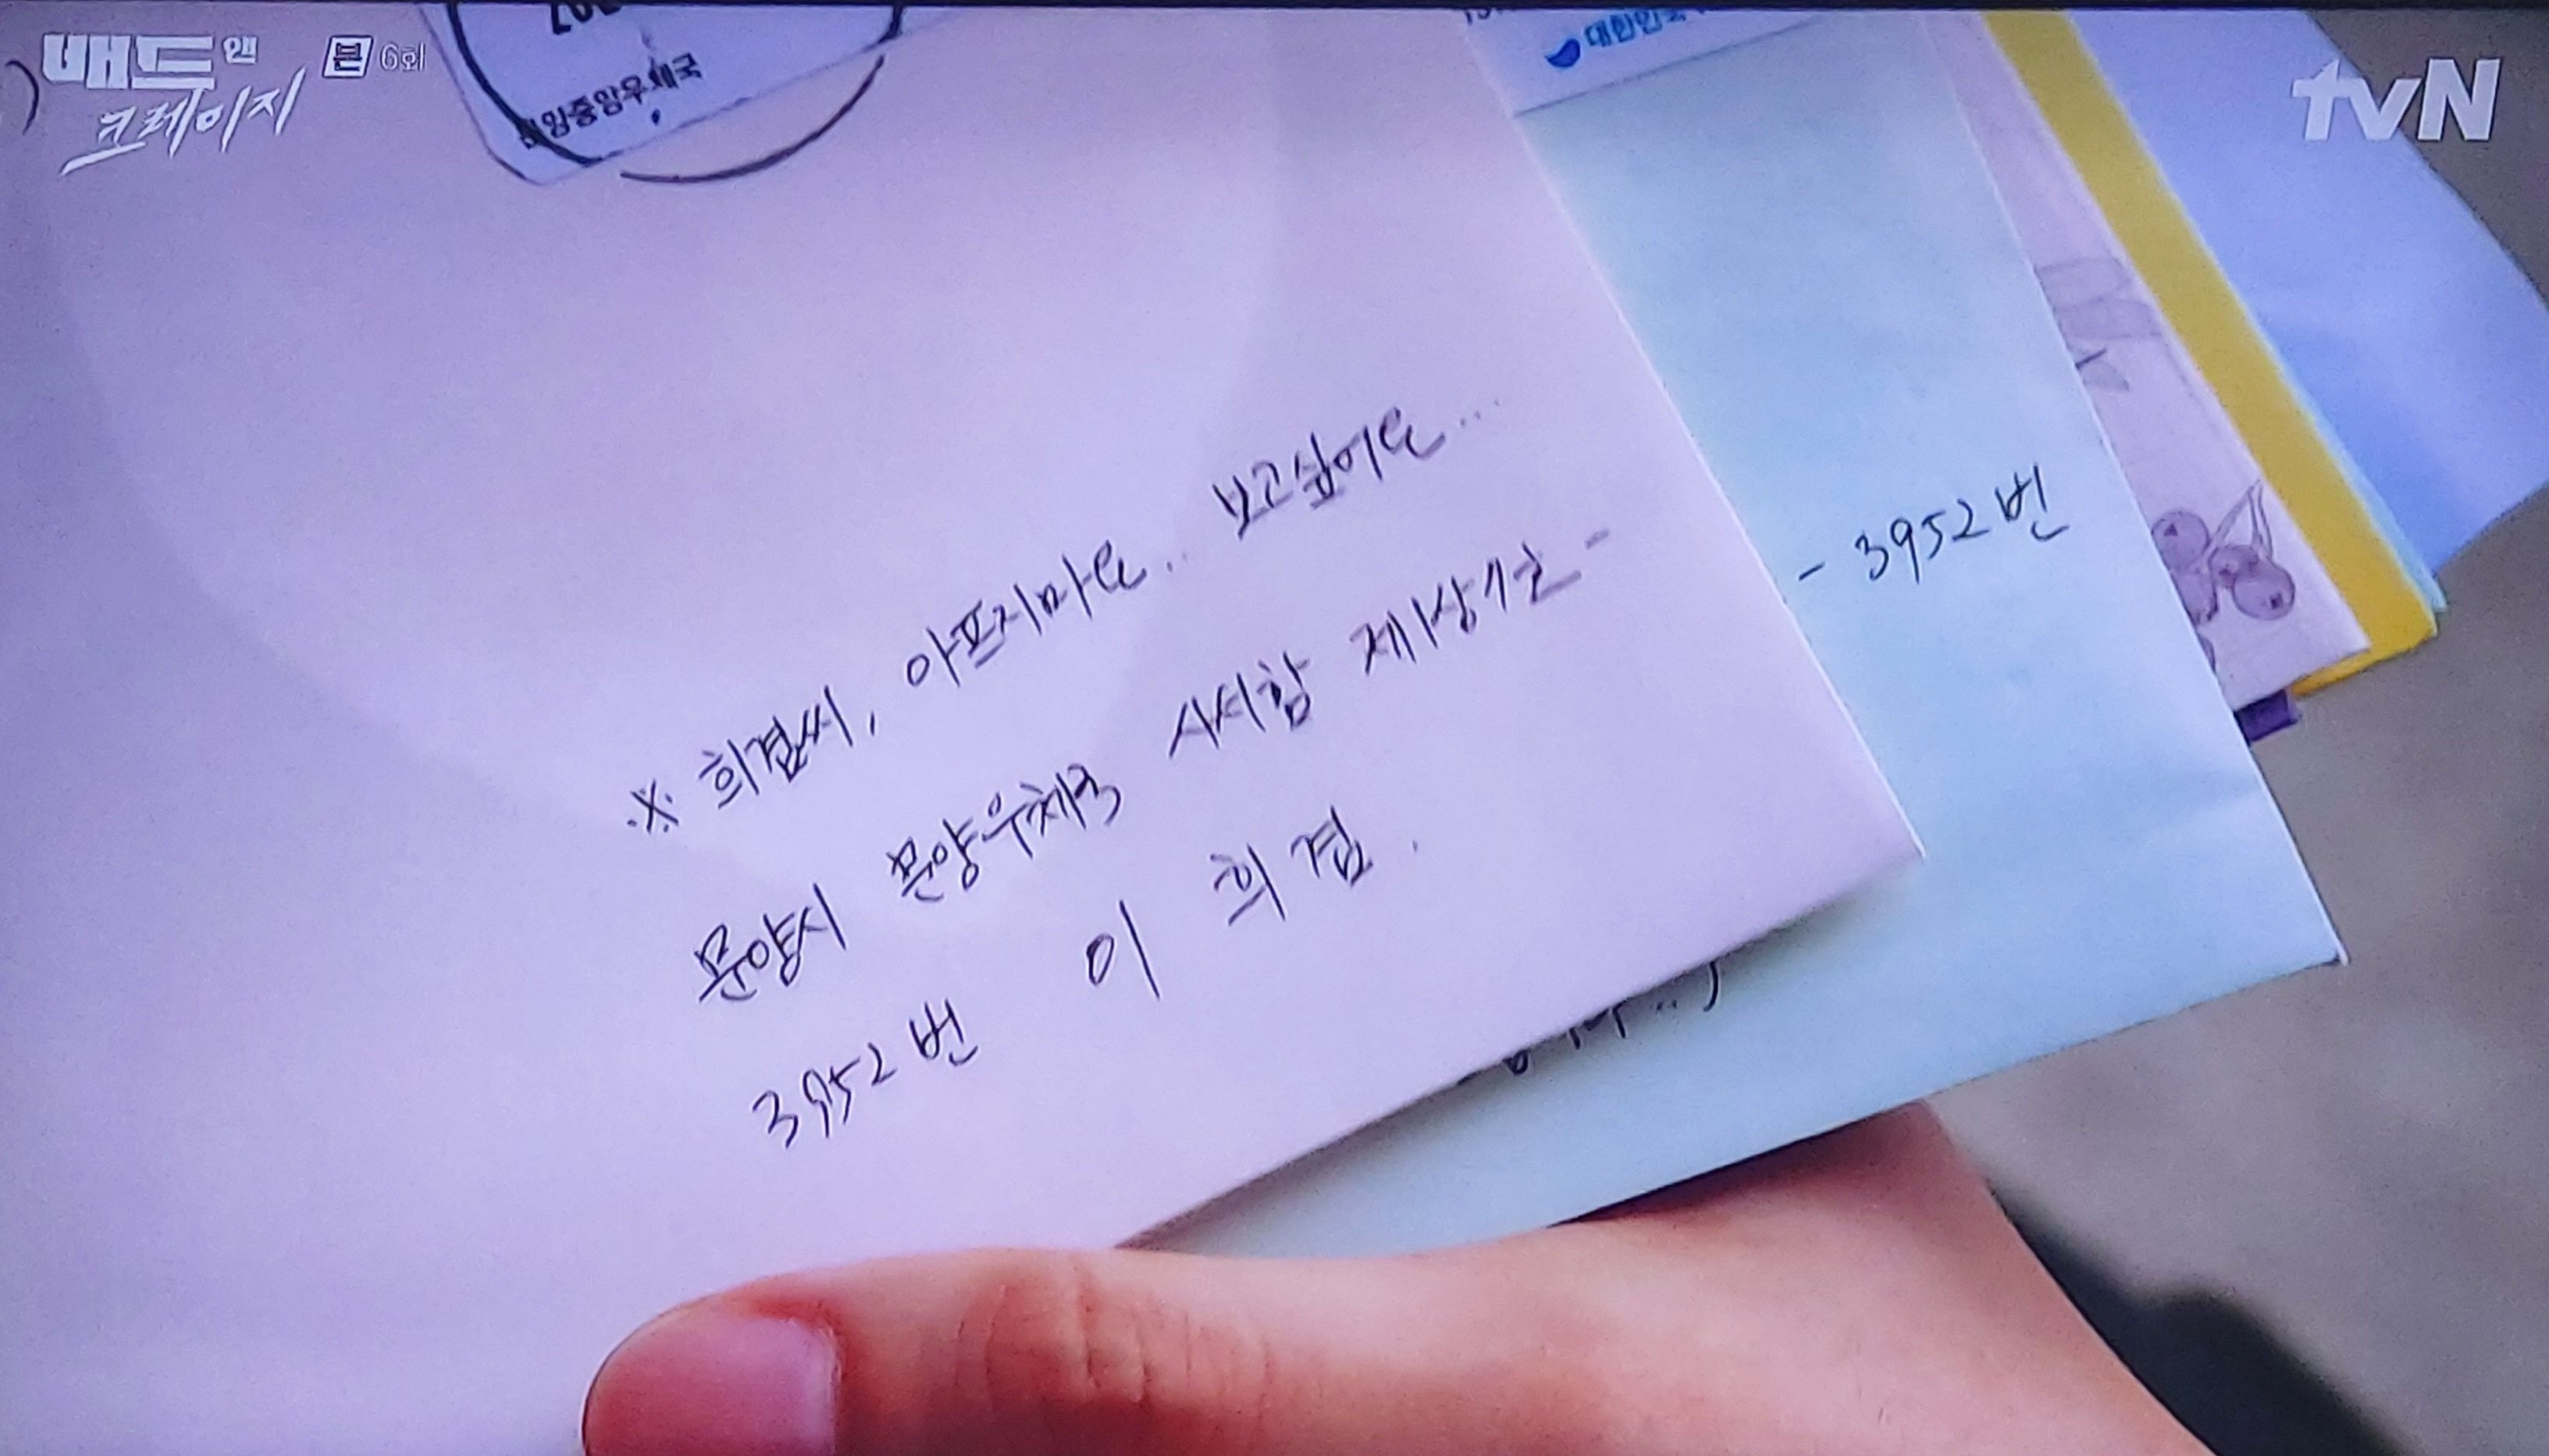 배드 앤 크레이지
본 6회
tvN
대한민국
중앙우체국
※ 희겸씨, 아프지마요.. 보고싶어요...
문양시 문양우체국 사서함
3952번 이 희겸.
- 3952번